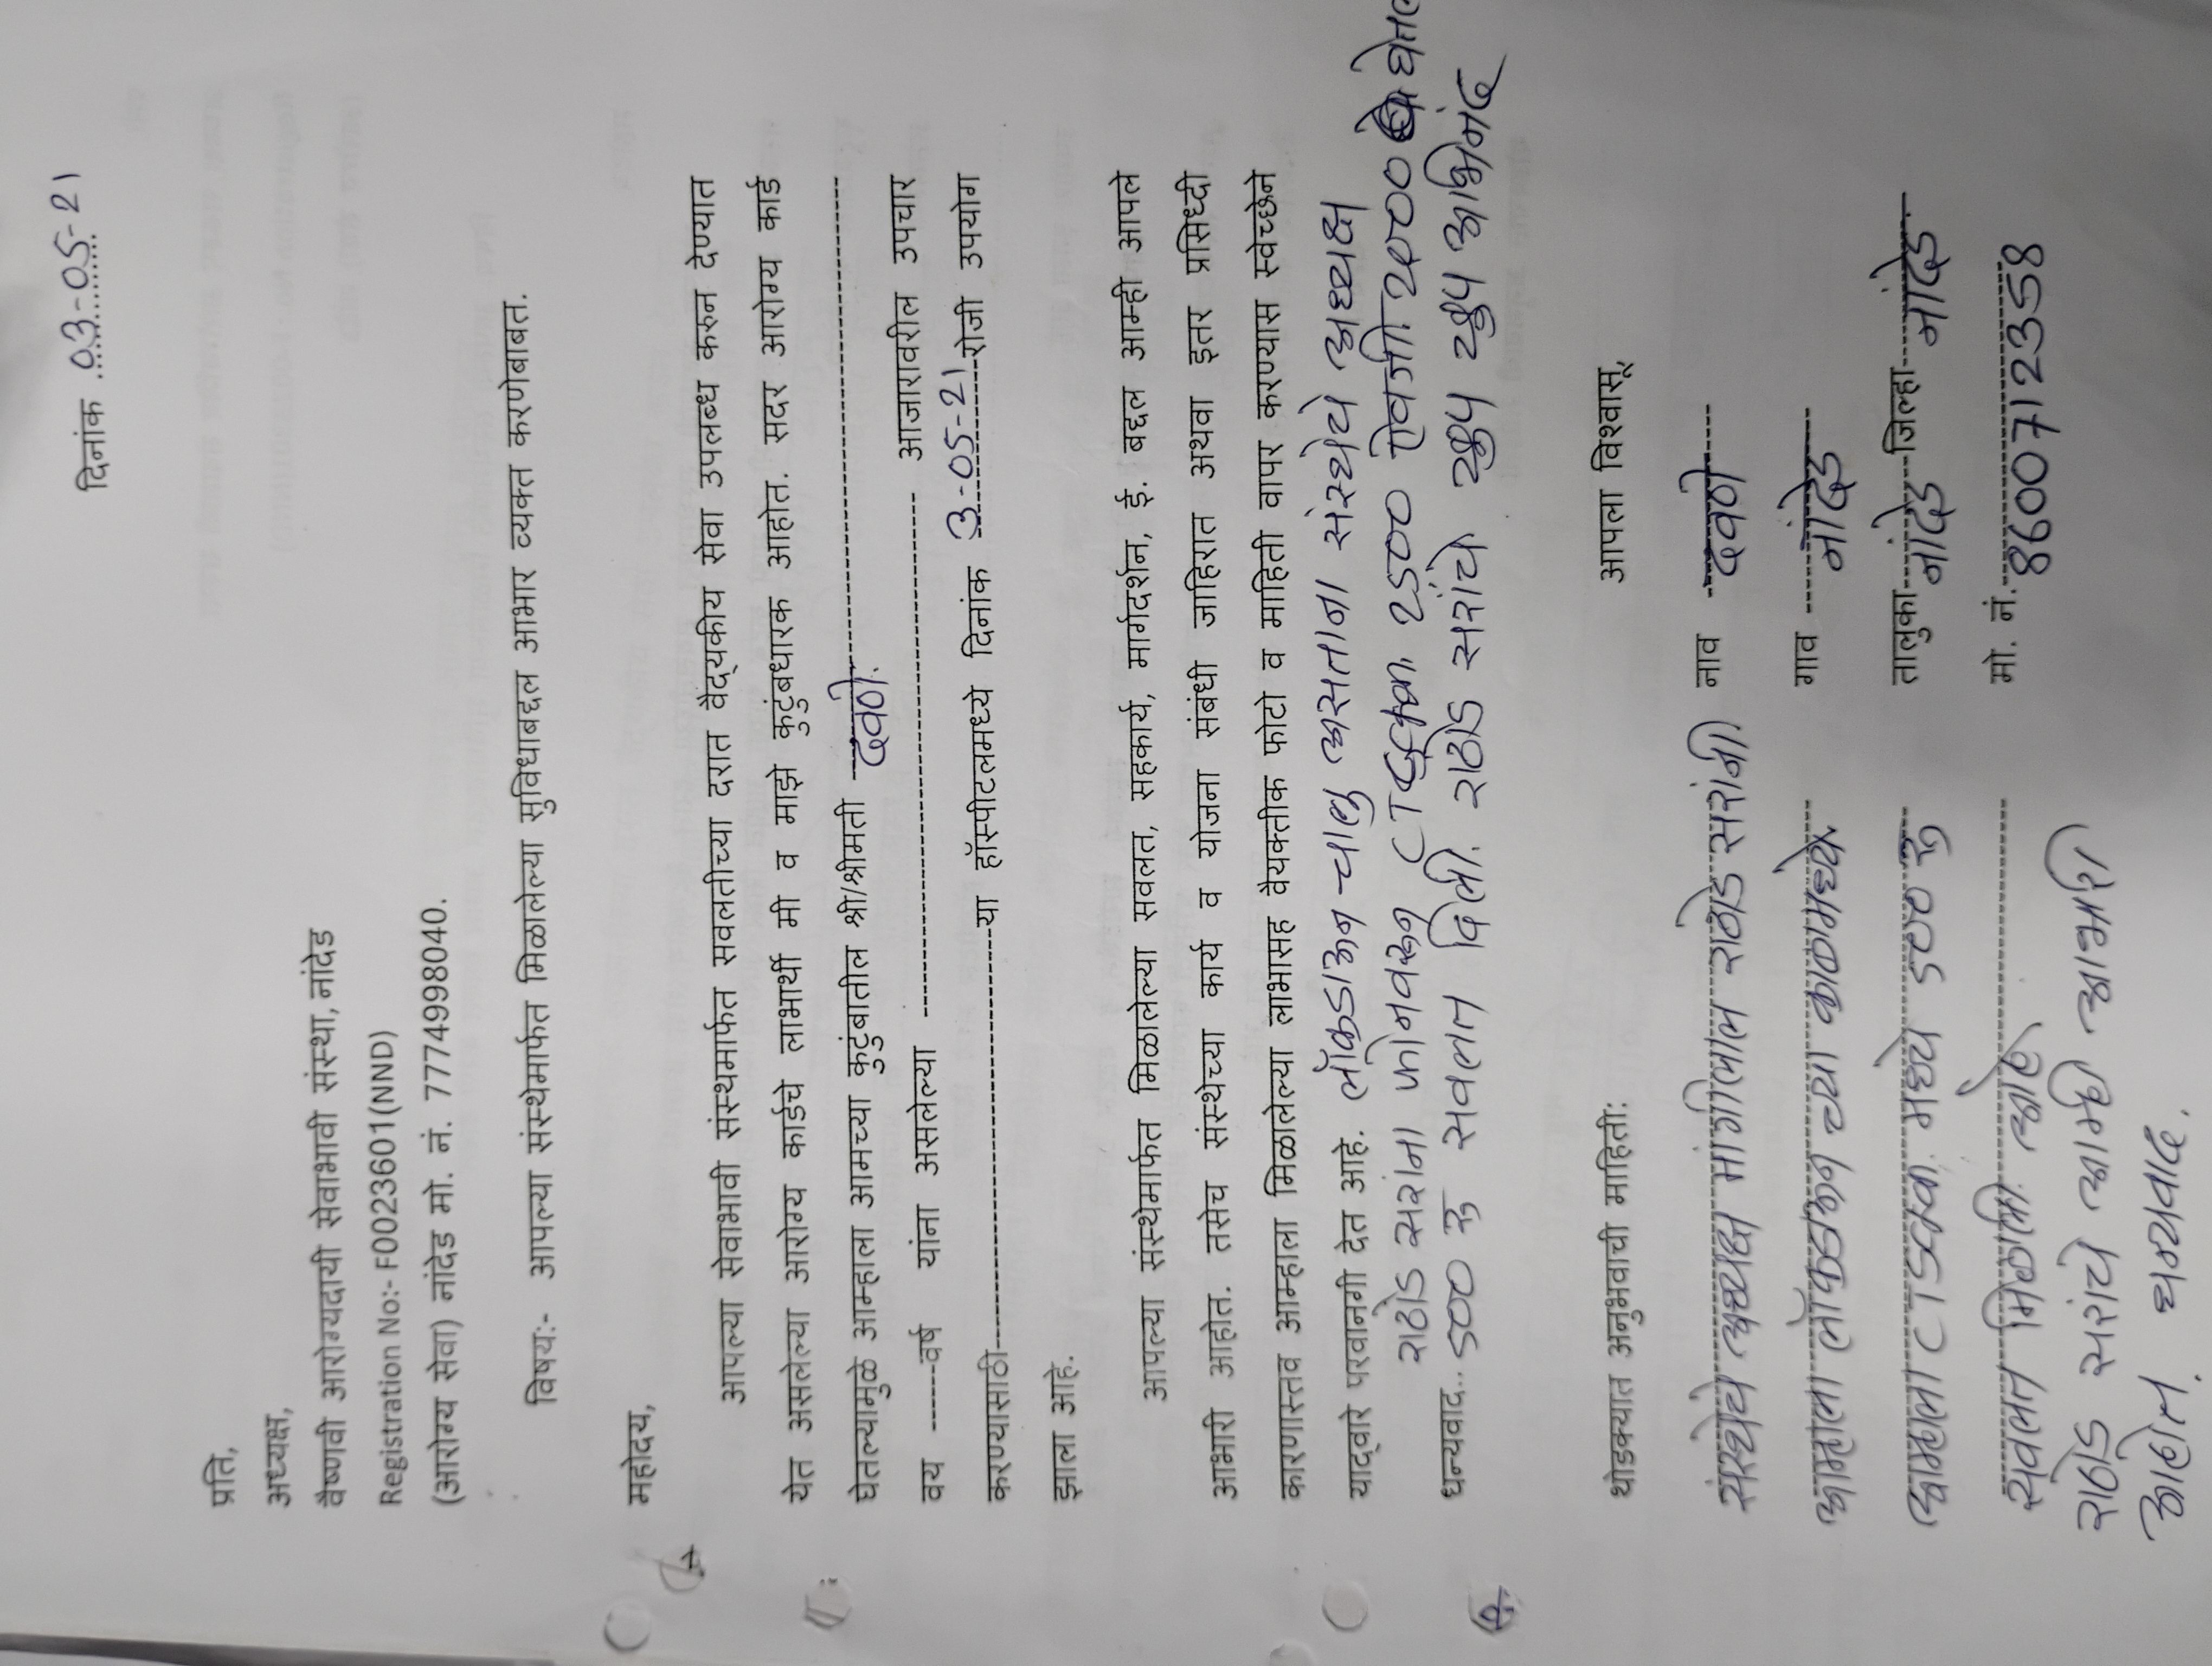 दिनांक 03-05-21
प्रति,
अध्यक्ष,
वैष्णवी आरोग्यदायी सेवाभावी संस्था, नांदेड
Registration No:- F0023601(NND)
(आरोग्य सेवा) नांदेड मो. नं. 7774998040.
विषय:- आपल्या संस्थेमार्फत मिळालेल्या सुविधाबद्दल आभार व्यक्त करणेबाबत.
महोदय,
आपल्या सेवाभावी संस्थमार्फत सवलतीच्या दरात वैद्यकीय सेवा उपलब्ध करुन देण्यात
येत असलेल्या आरोग्य कार्डचे लाभार्थी मी व माझे कुटुंबधारक आहोत. सदर आरोग्य कार्ड
घेतल्यामुळे आम्हाला आमच्या कुटुंबातील श्री/श्रीमती दवणे
वय ------वर्ष यांना असलेल्या ------ आजारावरील उपचार
करण्यासाठी------या हॉस्पीटलमध्ये दिनांक 3-05-21 रोजी उपयोग
झाला आहे.
आपल्या संस्थेमार्फत मिळालेल्या सवलत, सहकार्य, मार्गदर्शन, ई. बद्दल आम्ही आपले
आभारी आहोत. तसेच संस्थेच्या कार्य व योजना संबंधी जाहिरात अथवा इतर प्रसिध्दी
कारणास्तव आम्हाला मिळालेल्या लाभासह वैयक्तीक फोटो व माहिती वापर करण्यास स्वेच्छेने
याद्वारे परवानगी देत आहे. लॉकडाऊन चालु असताना संस्थेचे अध्यक्ष
राठोड सरांना फोनवरून CT स्कॅन 2500 ऐवजी 2000 घेतले
धन्यवाद.. 500 रु सवलत दिली. राठोड सरांचे खुप खुप अभिनंदन
थोडक्यात अनुभवाची माहिती:
आपला विश्वासू
संस्थेचे अध्यक्ष मांगीलाल राठोड सरांनी
नाव दवणे
आम्हाला लॉकडाऊन च्या काळामध्ये
गाव नांदेड
आम्हाला CT स्कॅन मध्ये 500 रु
तालुका नांदेड जिल्हा नांदेड
सवलत मिळाली आहे
मो. नं. 8600712358
राठोड सरांचे आम्ही आभारी
आहोत. धन्यवाद.